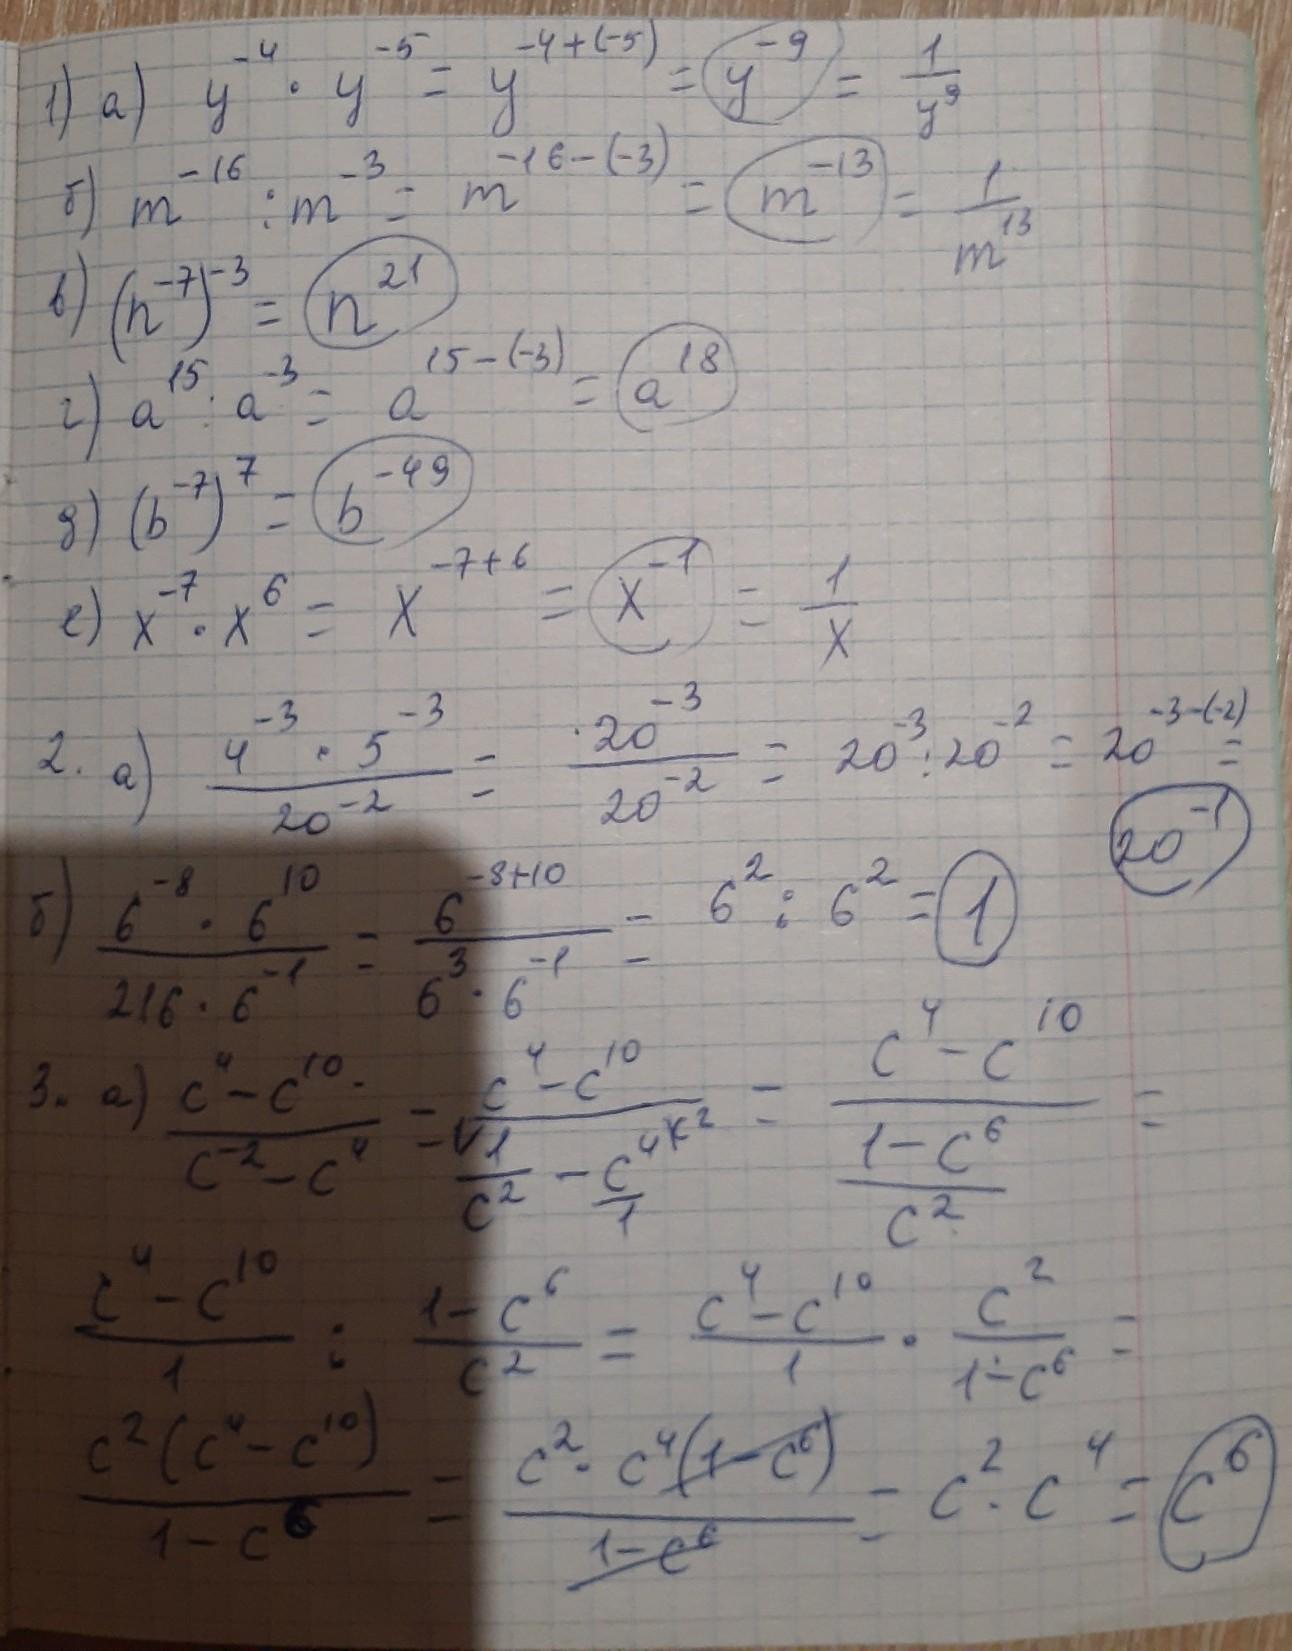 1) а) y⁻⁴ · y⁻⁵ = y⁻⁴⁺⁽⁻⁵⁾ = y⁻⁹ = 1/y⁹
б) m⁻¹⁶ : m⁻³ = m⁻¹⁶⁻⁽⁻³⁾ = m⁻¹³ = 1/m¹³
в) (n⁻⁷)⁻³ = n²¹
г) a¹⁵ : a⁻³ = a¹⁵⁻⁽⁻³⁾ = a¹⁸
д) (b⁻⁷)⁷ = b⁻⁴⁹
е) x⁻⁷ · x⁶ = x⁻⁷⁺⁶ = x⁻¹ = 1/x
2. а) (4⁻³ · 5⁻³)/20⁻² = 20⁻³/20⁻² = 20⁻³ : 20⁻² = 20⁻³⁻⁽⁻²⁾ =
20⁻¹
б) (6⁻⁸ · 6¹⁰)/(216 · 6⁻¹) = 6⁻⁸⁺¹⁰/(6³ · 6⁻¹) = 6² : 6² = 1
3. а) (c⁴ - c¹⁰)/(c⁻² - c⁴) = (c⁴ - c¹⁰)/(1/c² - c⁴/1) = (c⁴ - c¹⁰)/((1 - c⁶)/c²) =
(c⁴ - c¹⁰)/1 : (1 - c⁶)/c² = (c⁴ - c¹⁰)/1 · c²/(1 - c⁶) =
c²(c⁴ - c¹⁰)/(1 - c⁶) = c² · c⁴(1 - c⁶)/(1 - c⁶) = c² · c⁴ = c⁶